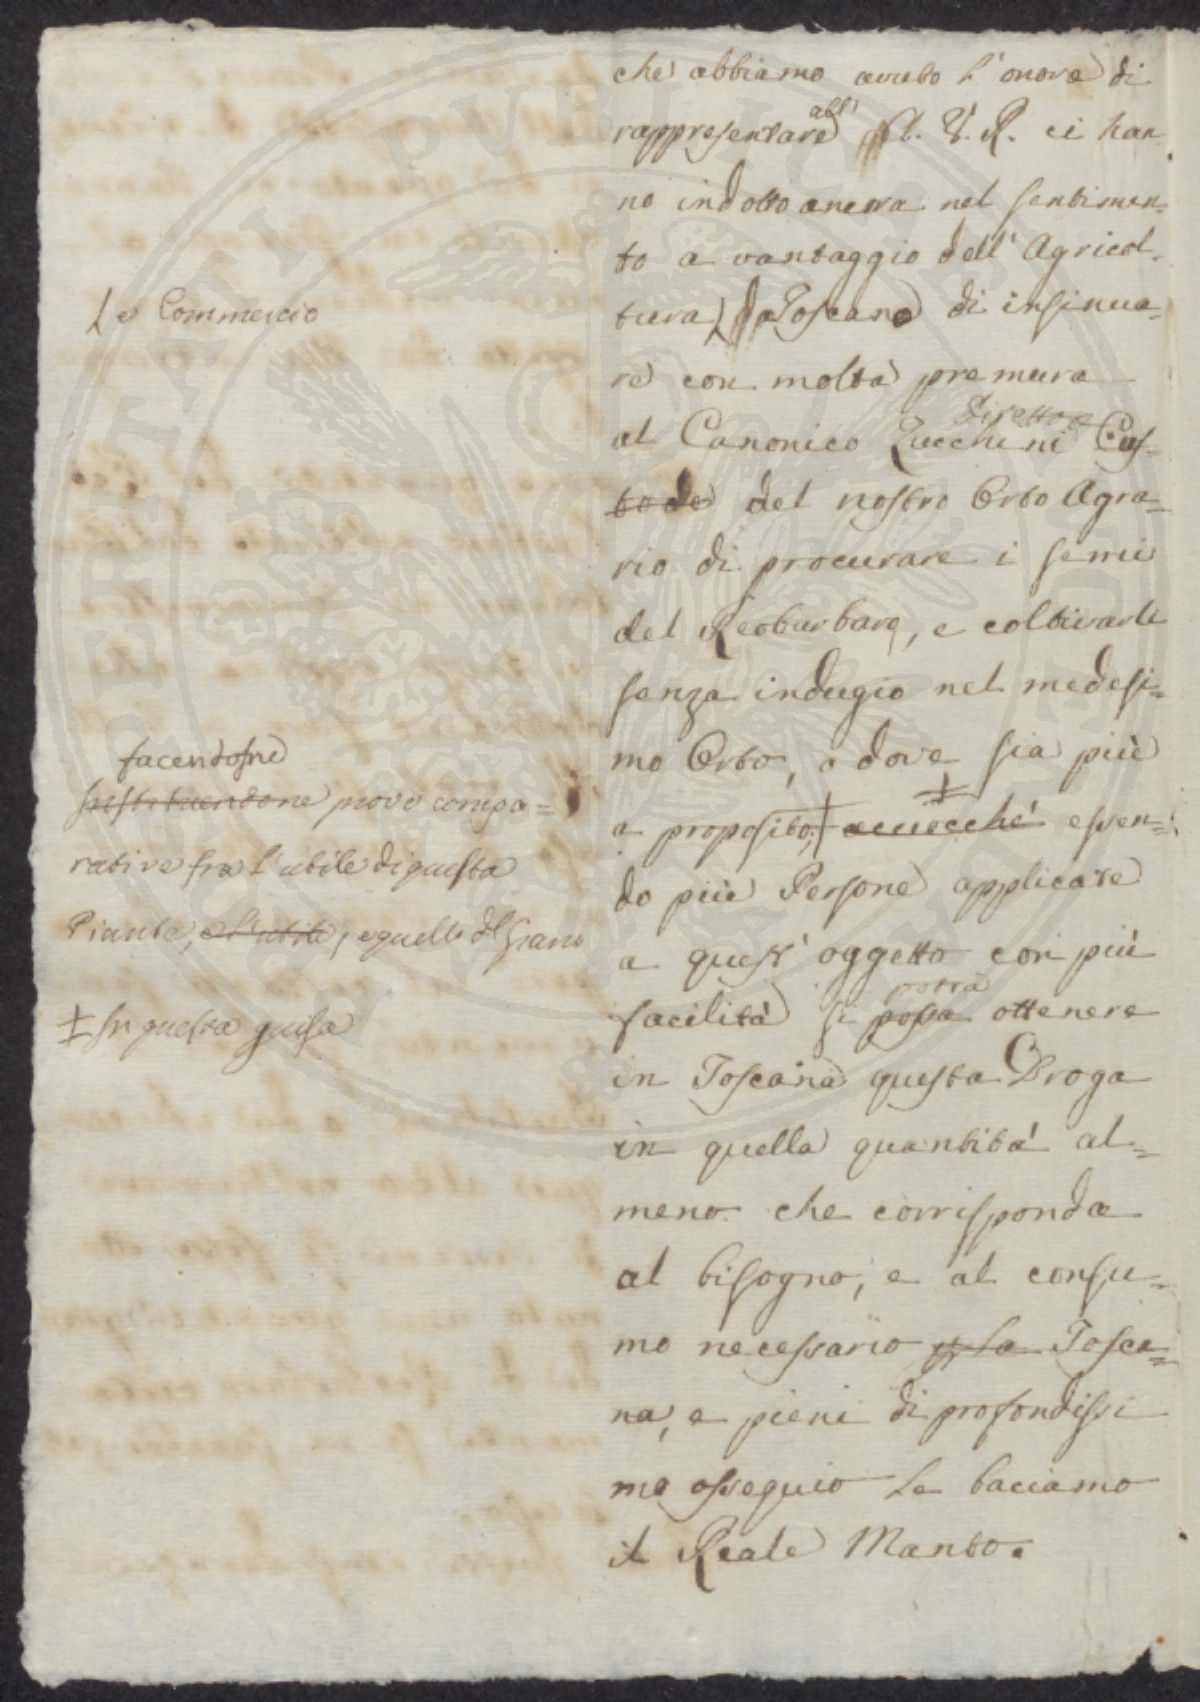 che abbiamo avuto l'onore di
all'
rappresentare A. V. R. ci han
no indotto ancora nel sentimen-
to a vantaggio dell'Agricol-
tura, Toscana di insinua-
re con molta premura
Direttore
al Canonico Zucchini Cus-
tode del nostro Orto Agra-
rio di procurare i semi
del Reobarbaro, e coltivarli
senza indugio nel medesi-
mo Orto, o dove sia più
a proposito, acciocchè essen-
do più Persone applicate
a quest'oggetto con più
potrà
facilità si possa ottenere
in Toscana questa Droga
in quella quantità al-
meno che corrisponda
al bisogno, e al consu-
mo necessario p la Tosca-
na, e pieni di profondissi
mo ossequio Le baciamo
il Reale Manto.
e Commercio
facendosne
sustituendone prove compa-
rative fra l'utile di questa
Pianta, e l'utile, e quello del Grano
‡ In questa guisa
PUBLICAE
PROSPERITATI